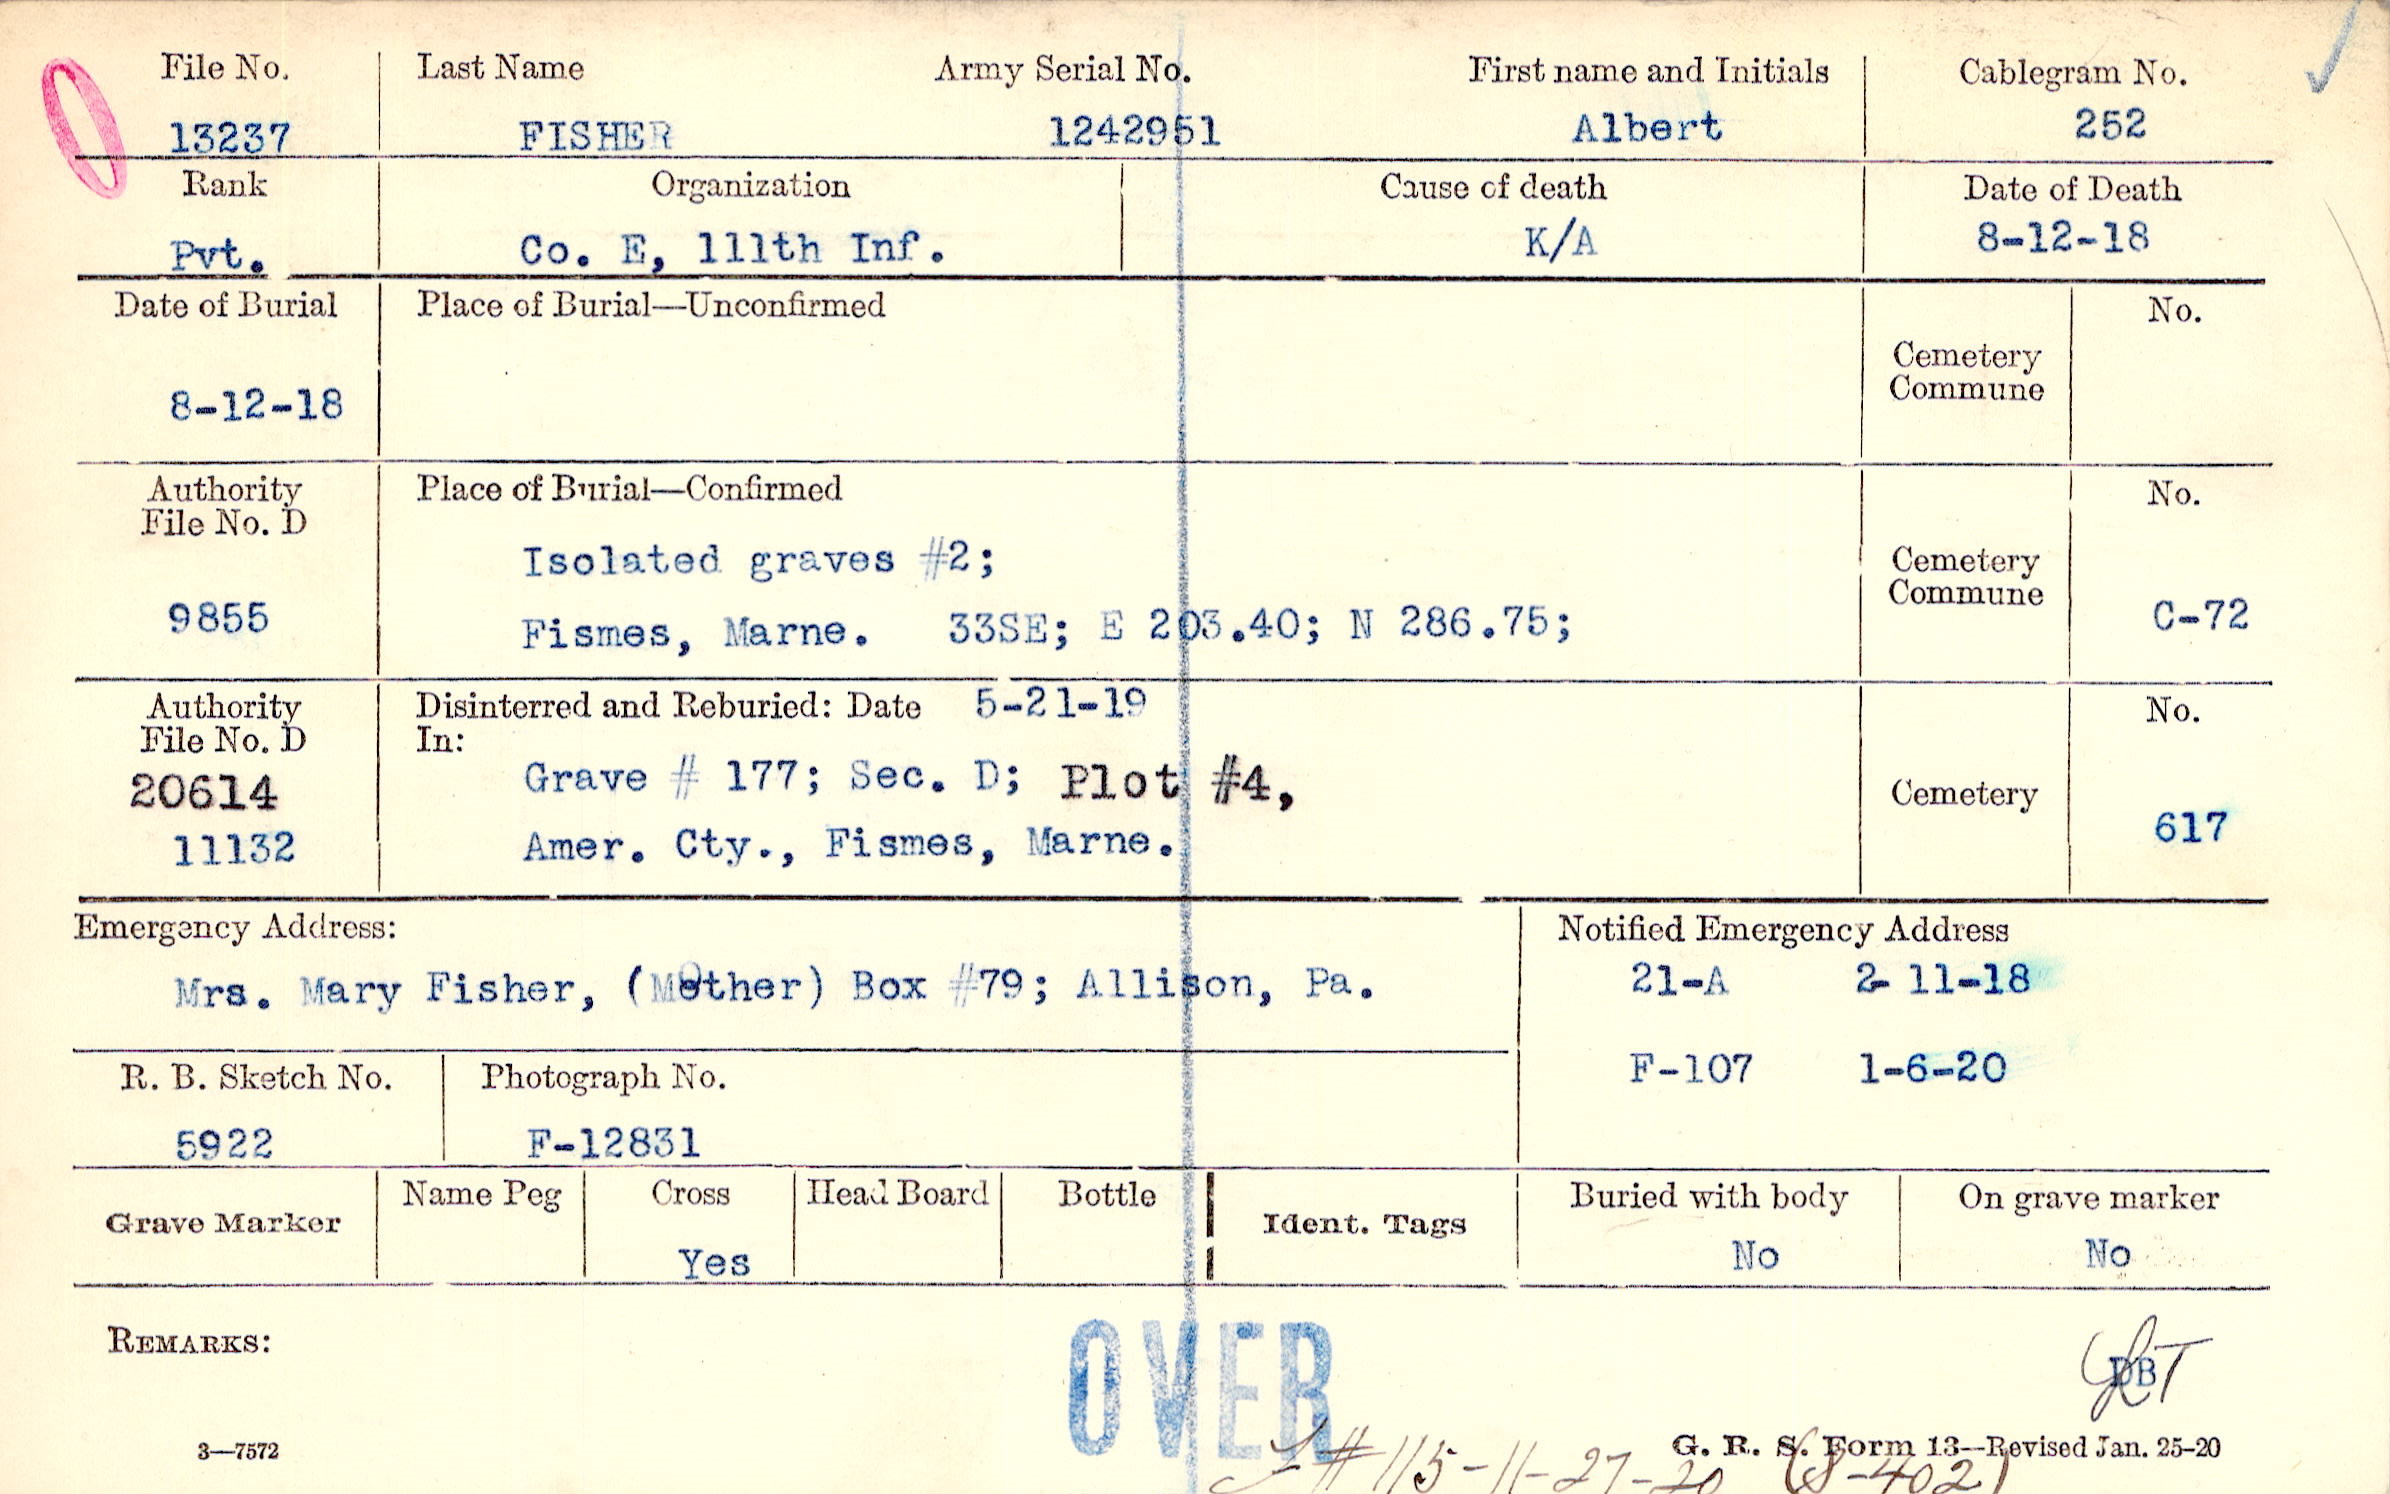 File No. Last Name Army Serial No. First name and Initials Cablegram No.
13237 FISHER 1242951 Albert 252
Rank Organization Cause of death Date of Death
Pvt. Co. E, 111th Inf. K/A 8-12-18
Date of Burial Place of Burial—Unconfirmed No.
Cemetery
Commune
8-12-18
Authority Place of Burial—Confirmed No.
File No. D
Isolated graves #2; Cemetery
Commune
9855 Fismes, Marne. 33SE; E 203.40; N 286.75; C-72
Authority Disinterred and Reburied: Date 5-21-19 No.
File No. D In:
20614 Grave # 177; Sec. D; Plot #4, Cemetery
11132 Amer. Cty., Fismes, Marne. 617
Emergency Address: Notified Emergency Address
Mrs. Mary Fisher, (Mother) Box #79; Allison, Pa. 21-A 2-11-18
F-107 1-6-20
R. B. Sketch No. Photograph No.
5922 F-12831
Grave Marker Name Peg Cross Head Board Bottle Ident. Tags Buried with body On grave marker
Yes No No
REMARKS:
OVER
DB
3—7572
G. R. S. Form 13—Revised Jan. 25-20
# 115-11-27-20 (8-402)